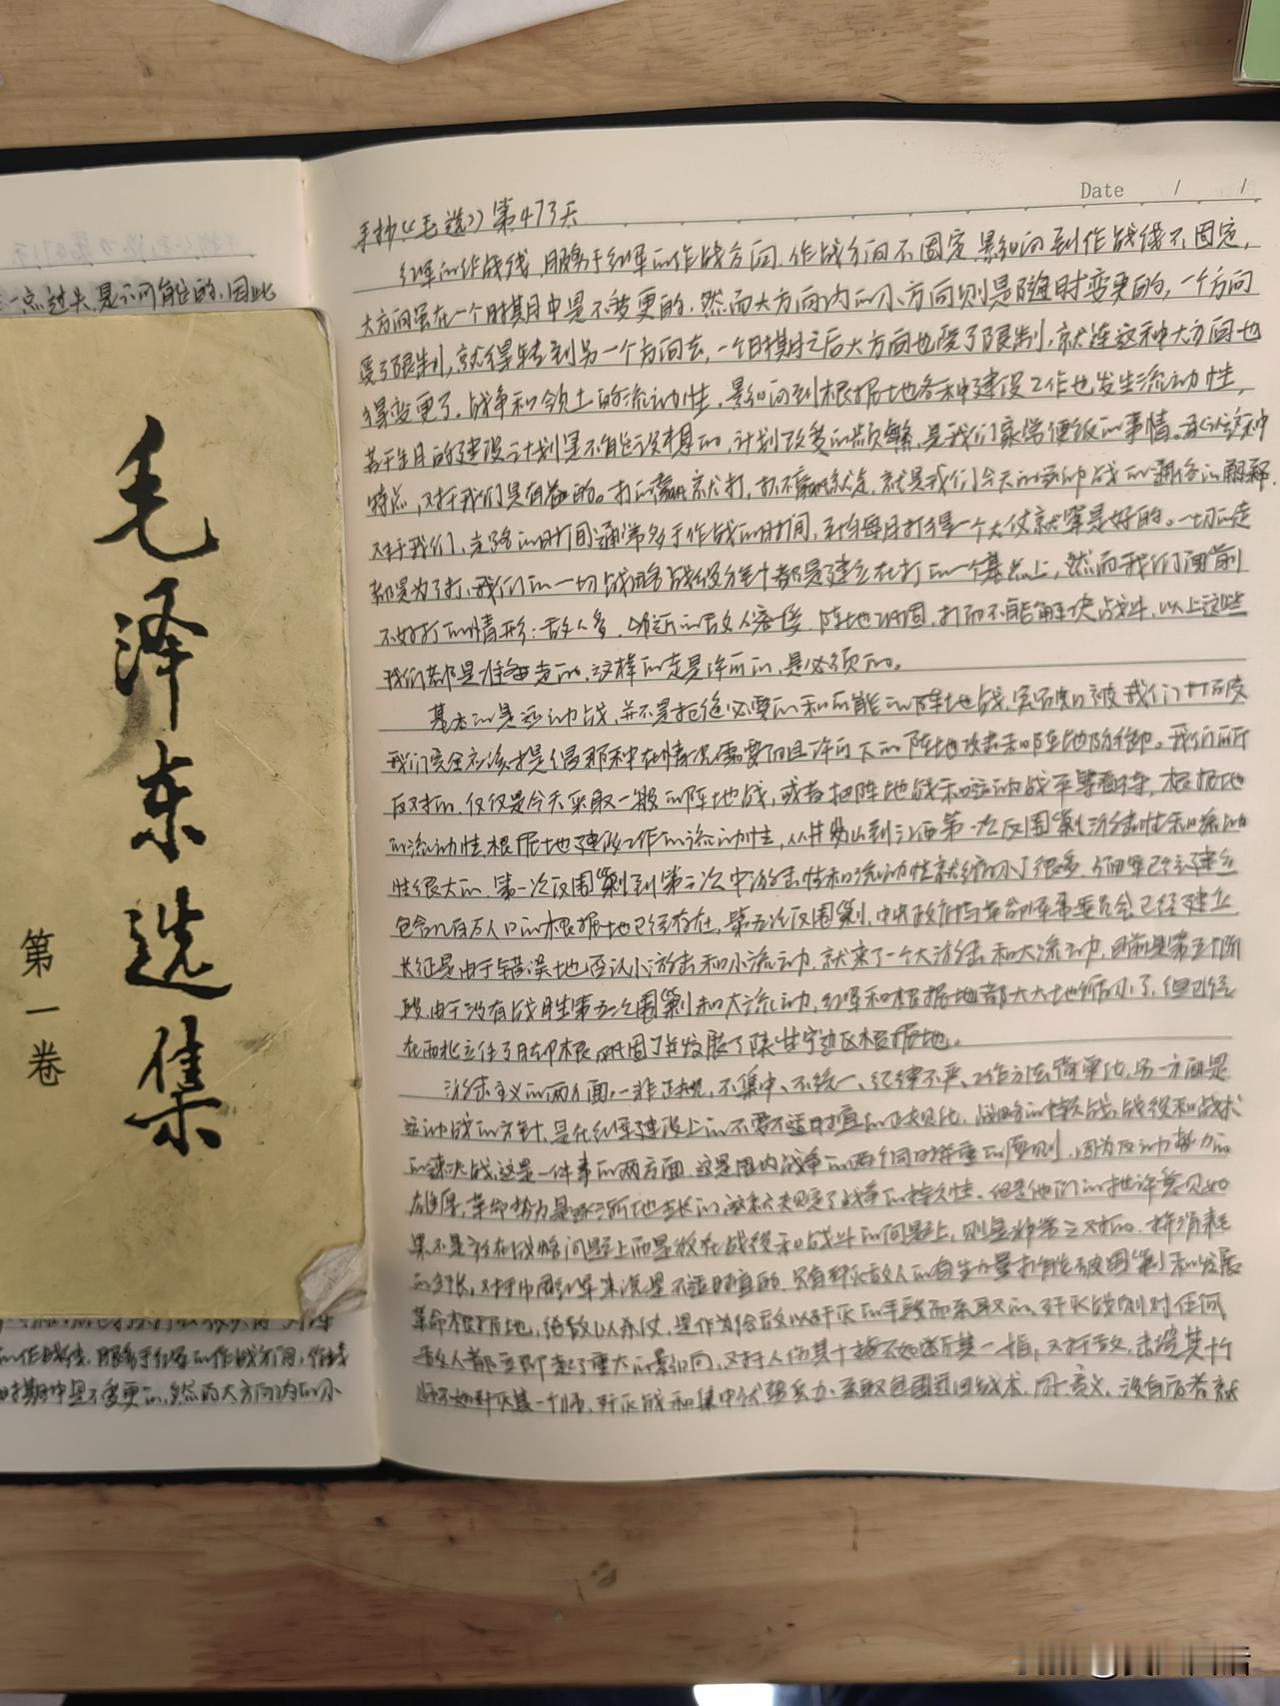 Date / /
手抄《毛选》第473天
红军的作战线，服务于红军的作战方向，作战方向不固定，影响到作战线不固定，
大方向虽在一个时期中是不变更的，然而大方向内的小方向则是随时变更的，一个方向
受了限制，就得转到另一个方向去，一个时期之后大方向也受了限制，就连这种大方向也
得变更了。战争和领土的流动性，影响到根据地各种建设工作也发生流动性，
若干年月的建设计划是不能设想的，计划改变的频繁，是我们家常便饭的事情。承认这种
特点，对于我们是有益的。打得赢就打，打不赢就走，就是我们今天的运动战的通俗的解释，
对于我们，走路的时间通常多于作战的时间，平均每月打得一个大仗就算是好的。一切的走
都是为了打，我们的一切战略战役方针都是建立在打的一个基点上，然而我们面前
不好打的情形：敌人多，邻近的敌人密接，阵地巩固，打而不能解决战斗，以上这些
我们都是准备走的，这样的走是许可的，是必须的。
基本的是运动战，并不是拒绝必要的和可能的阵地战，被我们打破
我们完全应该提倡那种在情况需要而且许可下的阵地攻击和阵地防御。我们所
反对的，仅仅是今天采取一般的阵地战，或者把阵地战和运动战平等看待，根据地
的流动性，根据地建设工作的流动性，从井冈山到江西第一次反围剿游击性和流动
性很大的，第一次反围剿到第三次中游击性和流动性就缩小了很多，方面军已经建立
包含几百万人口的根据地已经存在，第五次反围剿，中央政府与革命军事委员会已经建立
长征是由于错误地否认小游击和小流动，就来了一个大游击和大流动，目前是第五个阶
段，由于没有战胜第五次围剿和大流动，红军和根据地都大大地缩小了，但已经
在西北立住了脚根，巩固了并发展了陕甘宁边区根据地。
游击主义的两个面，一非正规，不集中、不统一、纪律不严、工作方法简单化，另一方面是
运动战的方针，是在红军建设上的不要不适时宜的正规化，战略的持久战，战役和战术
的速决战，这是一件事的两方面，这是国内战争的两个同时并重的原则，因为反动势力的
雄厚，革命势力是逐渐地生长的，这就规定了战争的持久性。但是他们的批评意见如
果不是放在战略问题上而是放在战役和战斗的问题上，则是非常之对的。拼消耗
的主张，对于中国红军来说是不适时宜的，只有歼灭敌人的有生力量打能破围剿和发展
革命根据地，给敌以杀伤，是作为给敌以歼灭的手段而采取的，歼灭战则对任何
敌人都立即起了重大的影响，对于人伤其十指不如断其一指，对于敌，击溃其十
师不如歼灭其一个师，歼灭战和集中优势兵力，采取包围迂回战术，同一意义，没有后者就
毛泽东选集
第一卷
一点过头，是不可能的，因此
的作战线，服务于红军的作战方向，作战
时期中是不变更的，然而大方向内的小